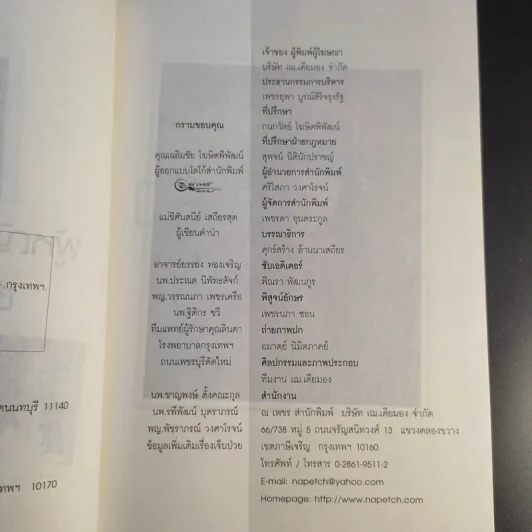 กรุงเทพฯ
คนนทบุรี 11140
ทพฯ 10170
กราบขอบคุณ
คุณเฉลิมชัย โฆษิตพิพัฒน์
ผู้ออกแบบโลโก้สำนักพิมพ์
แม่ชีศันสนีย์ เสถียรสุต
ผู้เขียนคำนำ
อาจารย์ยรรยง ทองเจริญ
นพ.ประณต นิพัทธสัจก์
พญ.วรรณนภา เพชรเครือ
นพ.ฐิติกร ชวี
ทีมแพทย์ผู้รักษาคุณลินดา
โรงพยาบาลกรุงเทพฯ
ถนนเพชรบุรีตัดใหม่
นพ.ชาญพงษ์ ตั้งคณะกุล
นพ.รพีพัฒน์ บุตราภรณ์
พญ.พัชราภรณ์ วงศาโรจน์
ข้อมูลเพิ่มเติมเรื่องเจ็บป่วย
เจ้าของ ผู้พิมพ์ผู้โฆษณา
บริษัท เฌ.เดียมอง จำกัด
ประธานกรรมการบริหาร
เพชรยุพา บูรณ์สิริจรุงรัฐ
ที่ปรึกษา
กนกวัลย์ โฆษิตพิพัฒน์
ที่ปรึกษาฝ่ายกฎหมาย
สุพจน์ นิตินักปราชญ์
ผู้อำนวยการสำนักพิมพ์
ศรีโสภา วงศาโรจน์
ผู้จัดการสำนักพิมพ์
เพชรดา อุนตระกูล
บรรณาธิการ
ศุกร์สร้าง ล้านนาเสถียร
ซับเอดิเตอร์
พิณรา พัฒนกูร
พิสูจน์อักษร
เพชรนภา ซอน
ถ่ายภาพปก
อมาตย์ นิมิตภาคย์
ศิลปกรรมและภาพประกอบ
ทีมงาน เฌ.เดียมอง
สำนักงาน
ณ เพชร สำนักพิมพ์ บริษัท เฌ.เดียมอง จำกัด
66/738 หมู่ 5 ถนนจรัญสนิทวงศ์ 13 แขวงคลองขวาง
เขตภาษีเจริญ กรุงเทพฯ 10160
โทรศัพท์ / โทรสาร 0-2861-9511-2
E-mail: napetch@yahoo.com
Homepage: http://www.napetch.com